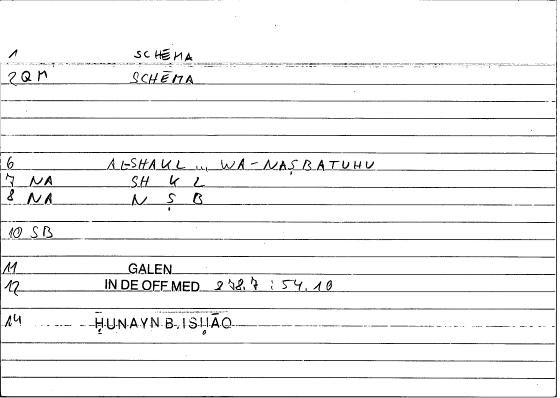 1 SCHĒMA
2 QM SCHĒMA
6 AL-SHAKL ... WA-NAṢBATUHU
7 NA SH K L
8 NA N Ṣ B
10 SB
11 GALEN
12 IN DE OFF MED 278.7 : 54.10
14 ḤUNAYN B. ISḤĀQ